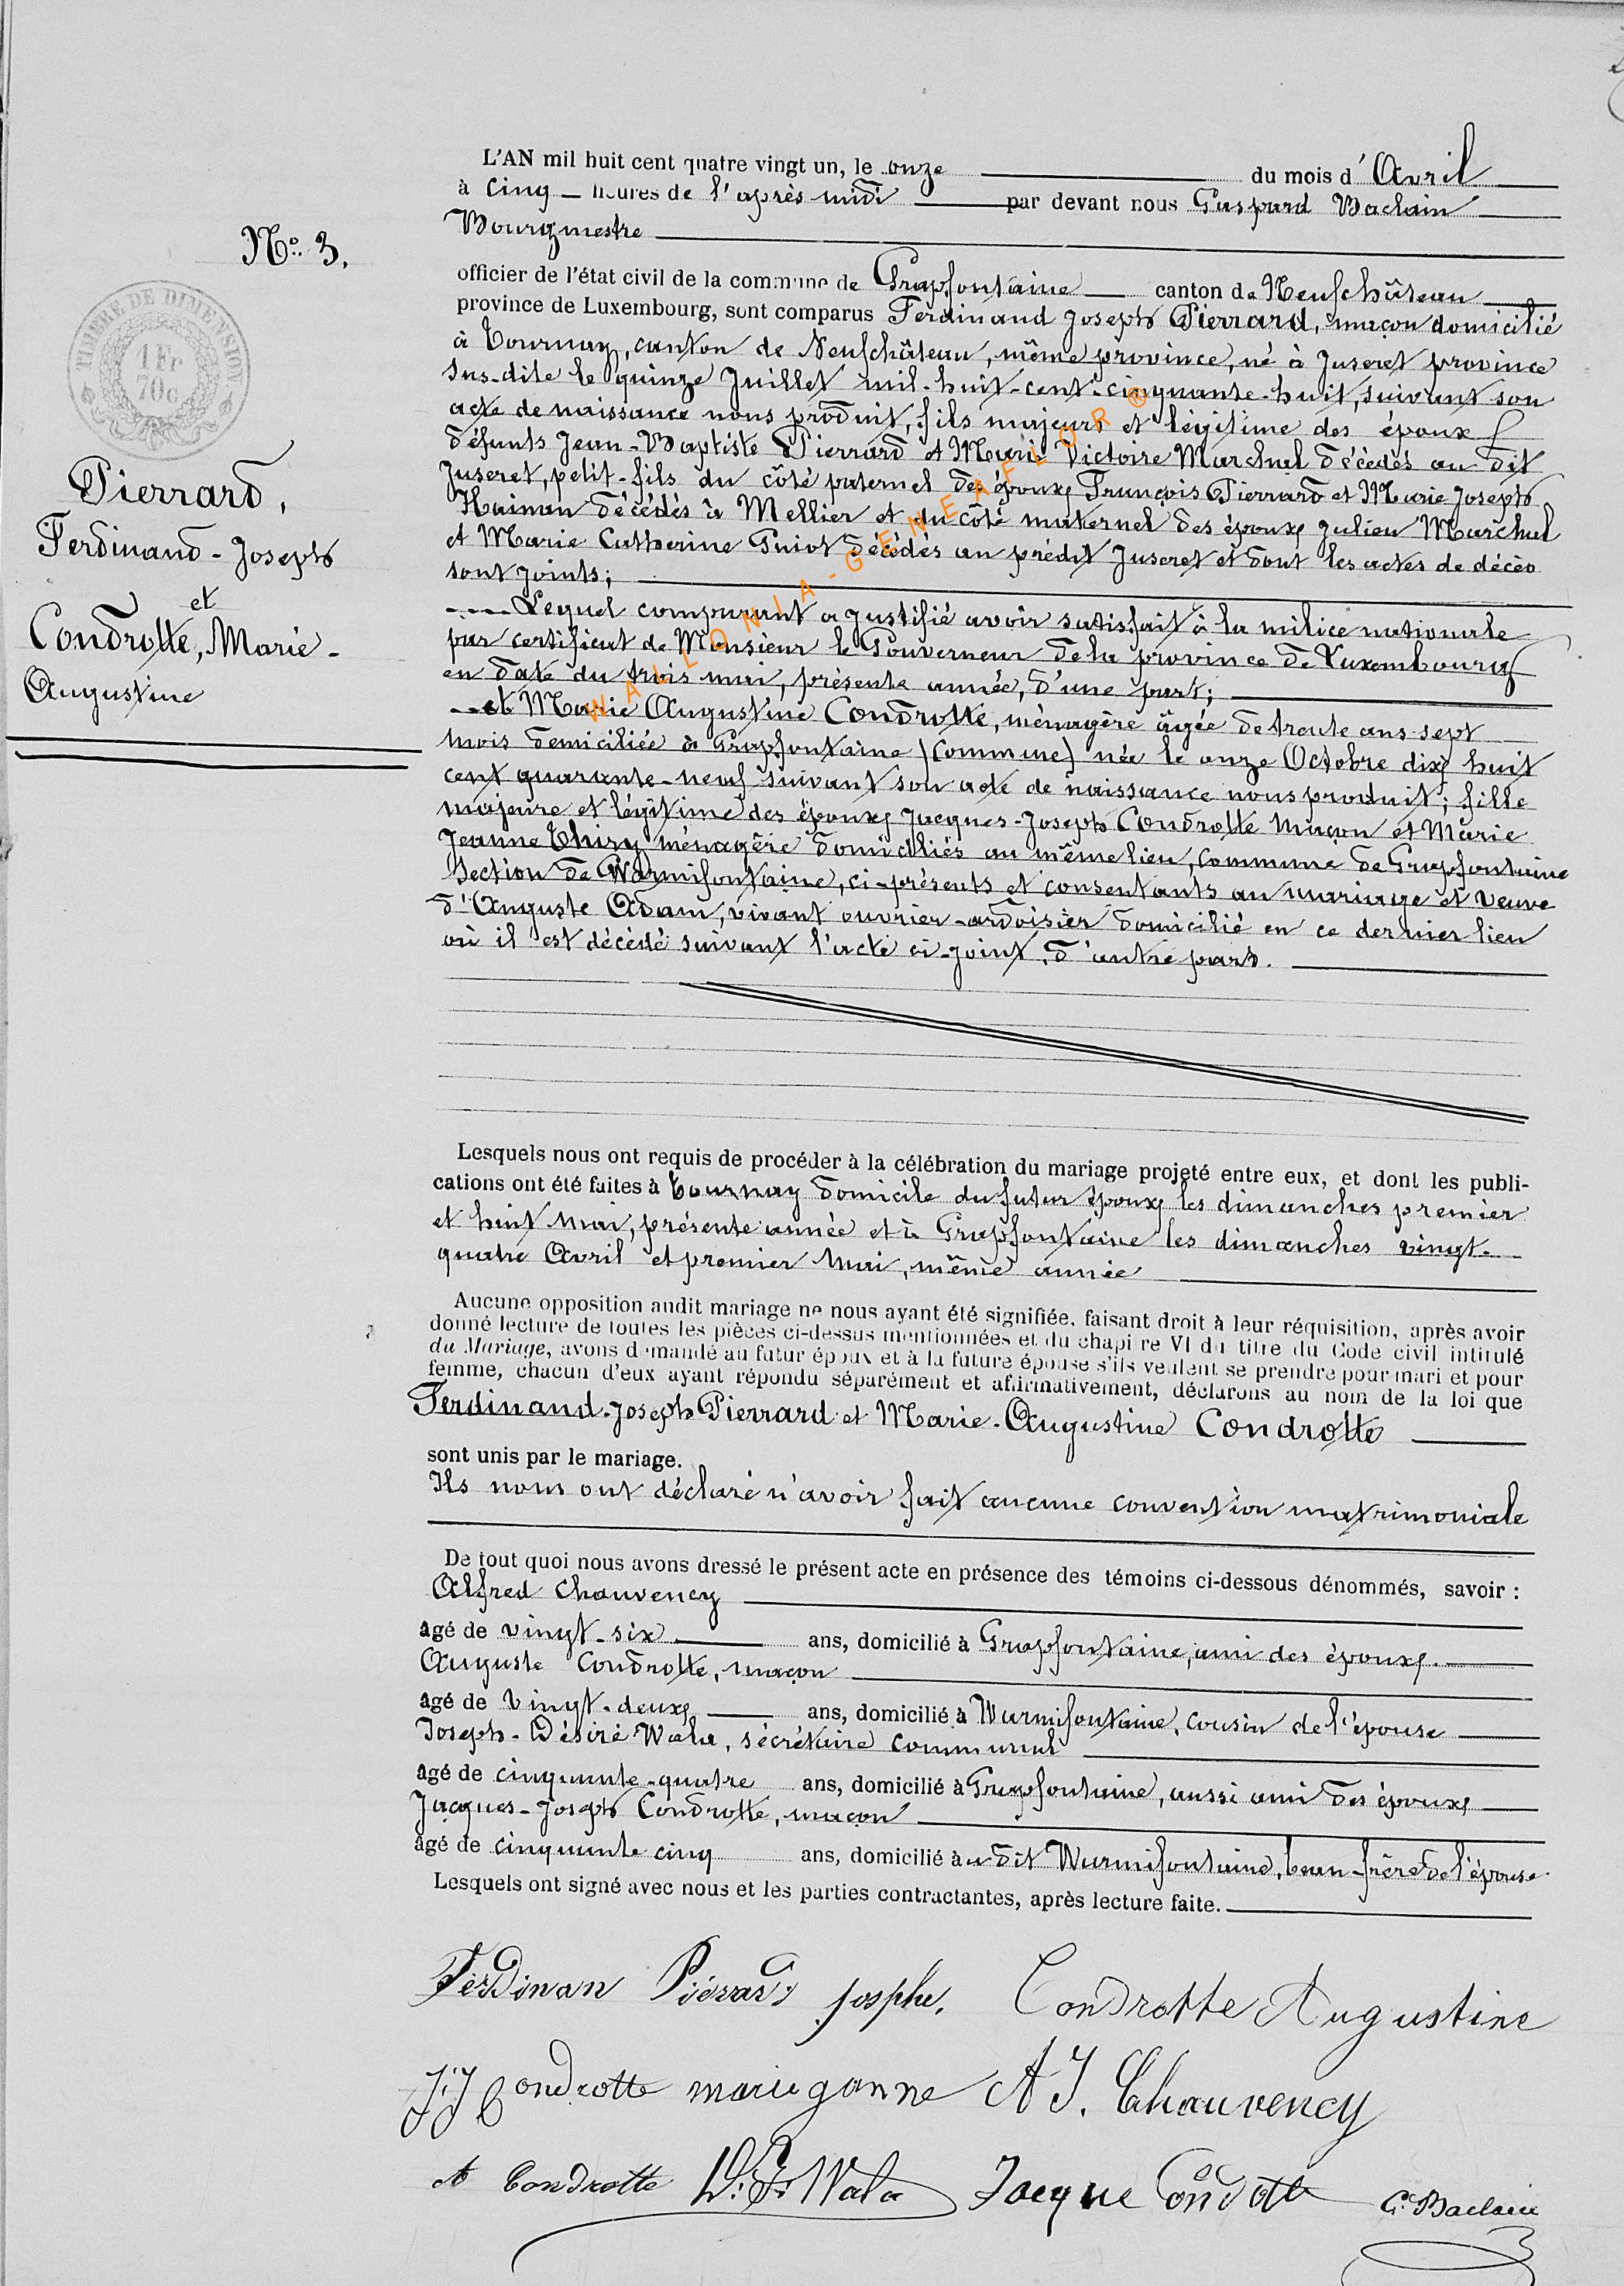 L'AN mil huit cent quatre vingt un, le onze du mois d'Avril
à cinq heures de l'après midi par devant nous Gaspard Baclain
Bourgmestre
No. 3.
officier de l'état civil de la commune de Grapfontaine canton de Neufchâteau
province de Luxembourg, sont comparus Ferdinand Joseph Pierrard, maçon domicilié
à Tournay, canton de Neufchâteau, même province, né à Juseret province
sus-dite le quinze Juillet mil-huit-cent-cinquante-huit, suivant son
acte de naissance nous produit, fils majeur et légitime des époux
défunts Jean-Baptiste Pierrard et Marie Victoire Marchal décédés au dit
Juseret, petit-fils du côté paternel des époux François Pierrard et Marie Joseph
Haiman décédés à Mellier et du côté maternel des époux Julien Marchal
et Marie Catherine Guiot décédés au prédit Juseret et dont les actes de décès
sont joints;
Lequel comparant a justifié avoir satisfait à la milice nationale
par certificat de Monsieur le Gouverneur de la province de Luxembourg
en date du trois mai, présente année, d'une part;
et Marie Augustine Condrotte, ménagère âgée de trente ans sept
mois demiciliée à Grapfontaine (Commune) née le onze Octobre dix huit
cent quarante-neuf suivant son acte de naissance nous produit; fille
majeure et légitime des époux Jacques-Joseph Condrotte maçon et Marie
Jeanne Thiry ménagère domiciliés au même lieu, commune de Grapfontaine
section de Warmifontaine, ci-présents et consentants au mariage et veuve
d'Auguste Adam, vivant ouvrier-ardoisier domicilié en ce dernier lieu
où il est décédé suivant l'acte ci-joint, d'autre part.
TIMBRE DE DIMENSION
1 Fr
70c
Pierrard,
Ferdinand-Joseph
et
Condrotte, Marie-
Augustine
WALLONIA-GENEAFLOR®
Lesquels nous ont requis de procéder à la célébration du mariage projeté entre eux, et dont les publi-
cations ont été faites à Tournay domicile du futur époux les dimanches premier
et huit Mai, présente année et à Grapfontaine les dimanches vingt-
quatre Avril et premier Mai, même année
Aucune opposition audit mariage ne nous ayant été signifiée, faisant droit à leur réquisition, après avoir
donné lecture de toutes les pièces ci-dessus mentionnées et du chapi re VI du titre du Code civil intitulé
du Mariage, avons demandé au futur époux et à la future épouse s'ils veulent se prendre pour mari et pour
femme, chacun d'eux ayant répondu séparément et affirmativement, déclarons au nom de la loi que
Ferdinand-Joseph Pierrard et Marie-Augustine Condrotte
sont unis par le mariage.
Ils nous ont déclaré n'avoir fait aucune convention matrimoniale
De tout quoi nous avons dressé le présent acte en présence des témoins ci-dessous dénommés, savoir :
Alfred Chauvency
âgé de vingt-six ans, domicilié à Grapfontaine, ami des époux.
Auguste Condrotte, maçon
âgé de vingt-deux ans, domicilié à Warmifontaine, cousin de l'épouse
Joseph-Désiré Wala, sécrétaire communal
âgé de cinquante-quatre ans, domicilié à Grapfontaine, aussi ami des époux
Jacques-Joseph Condrotte, maçon
âgé de cinquante cinq ans, domicilié au dit Warmifontaine, beau-frère de l'épouse
Lesquels ont signé avec nous et les parties contractantes, après lecture faite.
Ferdinan Piérard josphe. Condrotte Augustine
J J Condrotte marie ganne A J. Chauvency
A Condrotte D. J. Wala Jacque Condotte G. Baclain